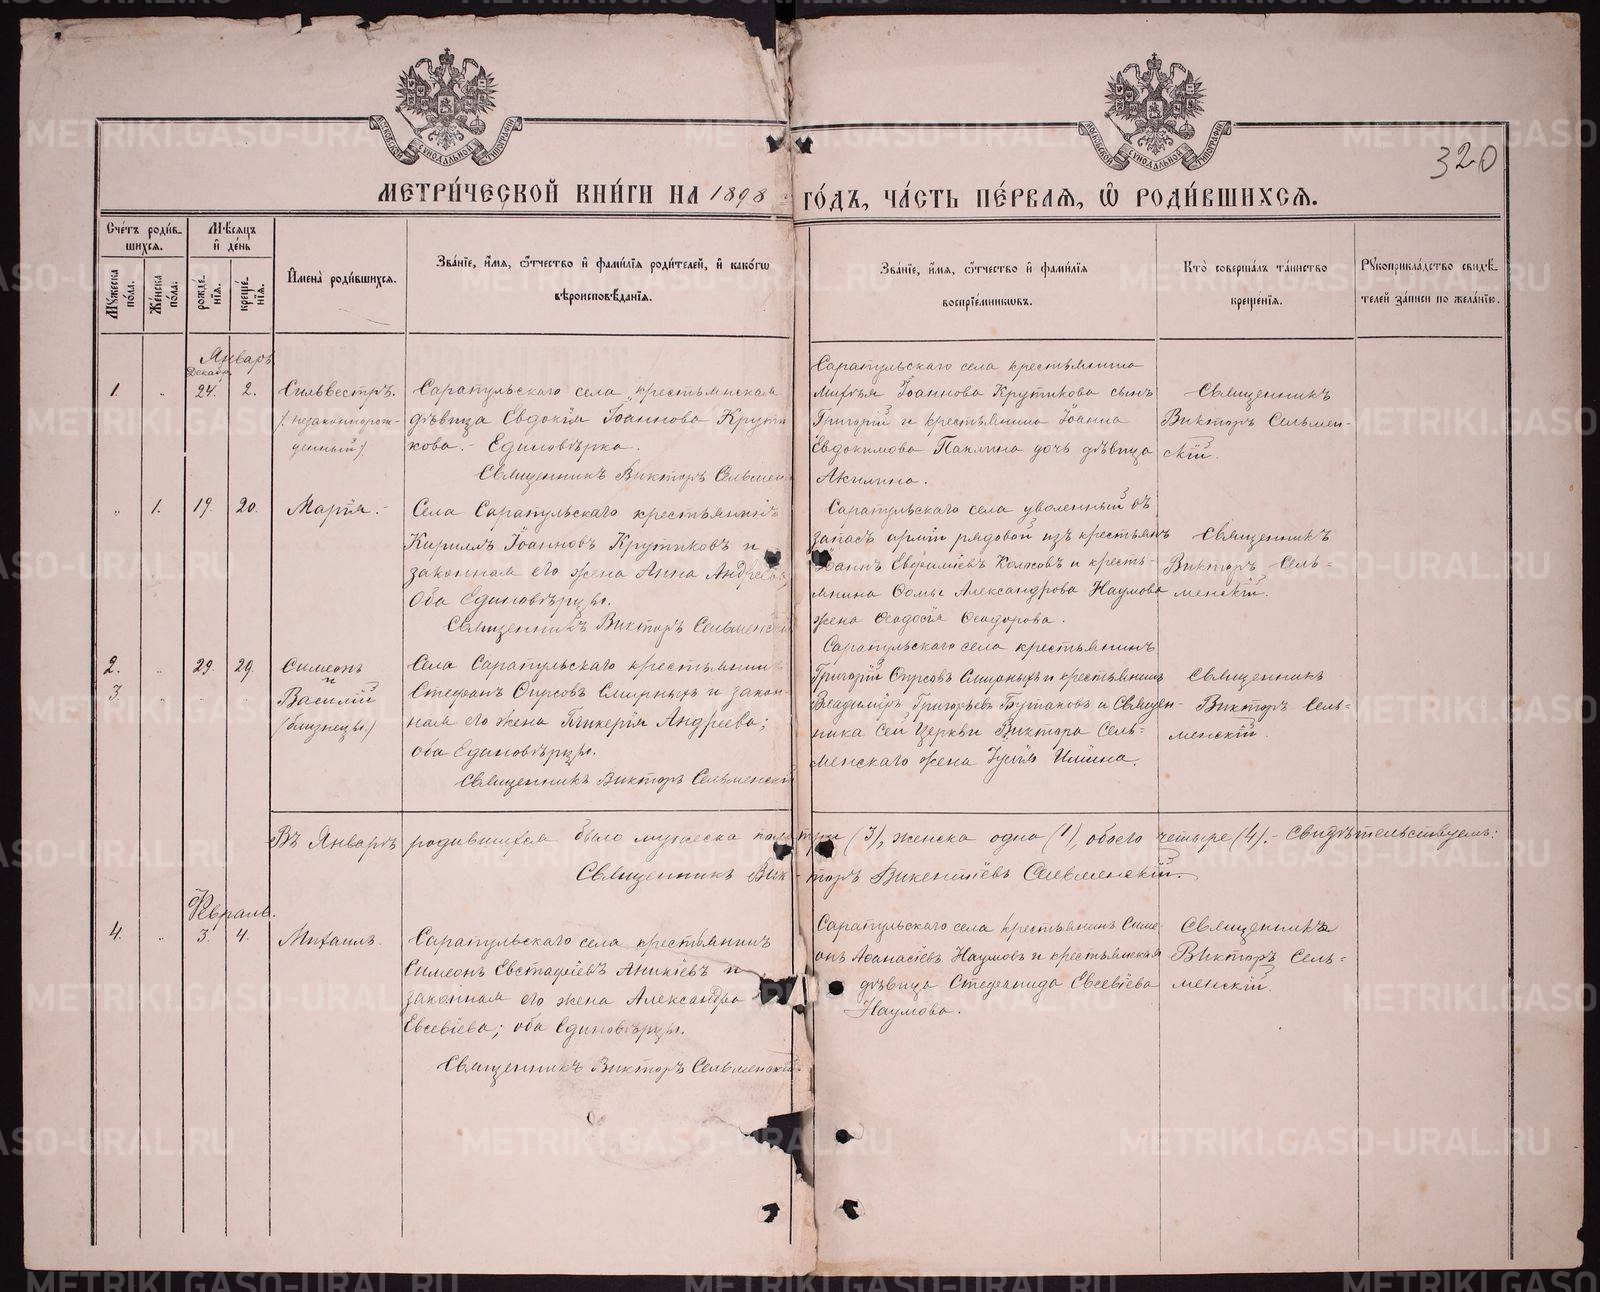 МОСКОВСКОЙ СѴНОДАЛЬНОЙ ТИПОГРАФІИ
МОСКОВСКОЙ СѴНОДАЛЬНОЙ ТИПОГРАФІИ
320
МЕТРИ́ЧЕСКОЙ КНИ́ГИ НА 1898 ГО́ДЪ, ЧА́СТЬ ПЕ́РВАЯ, Ѡ҆ РОДИ́ВШИХСЯ.
Сче́тъ роди́в-
шихся.
Мѣ́сяцъ
и҆ де́нь
Мꙋ́жеска по́ла.
Же́нска по́ла.
рожде́-
нїя.
креще́-
нїя.
И҆мена̀ роди́вшихся.
Зва́нїе, и҆́мя, ѻ҆́тчество и҆ фами́лїя роди́телей, и҆ како́гѡ
вѣроисповѣ́данїя.
Зва́нїе, и҆́мя, ѻ҆́тчество и҆ фами́лїя
воспрїе́мникѡвъ.
Кто̀ соверша́лъ та́инство
креще́нїя.
Рꙋкоприкла́дство свидѣ́-
телей за́писи по жела́нїю.
Январь
Декабр.
1. „ 24. 2. Сильвестръ.
/: незаконнорож-
денный :/.
Сарапульскаго села крестьянская
дѣвица Евдокія Іоаннова Крути
кова. - Единовѣрка.
Священникъ Викторъ Сельмен
Сарапульскаго села крестьянина
Іоаннова Крутикова сынъ
Григорій и крестьянина Іоанна
Евдокимова дочь дѣвица
Акилина.
Священникъ
Викторъ Сельмен-
скій.
„ 1. 19. 20. Марія. -
Села Сарапульскаго крестьянинъ
Кириллъ Іоанновъ Крутиковъ и
законная его жена Анна Андреева
Оба Единовѣрцы.
Священникъ Викторъ Сельменскій
Сарапульскаго села уволенный въ
запасъ арміи рядовой изъ крестьянъ
Іоаннъ Евѳиміевъ и кресть-
янина Ѳомы Александрова Наумова
жена Ѳеодосія Ѳеодорова.
Священникъ
Викторъ Сель-
менскій.
2. „ 29. 29. Симеонъ
и
3. „ - - Василій
(близнецы.)
Села Сарапульскаго крестьянинъ
Стефанъ Смирныхъ и закон-
ная его жена Гликерія Андреева;
оба Единовѣрцы.
Священникъ Викторъ Сельменскій
Сарапульскаго села крестьянинъ
Григорій Смирныхъ и крестьянинъ
Владиміръ Григорьевъ Бутаковъ и Священ-
ника сей Церкви Виктора Сель-
менскаго жена Ильина.
Священникъ
Викторъ Сель-
менскій.
Въ Январѣ родившихся было мужеска пола три (3), женска одна (1), обоего четыре (4). - Свидѣтельствуемъ:
Священникъ Вик-торъ Викентіевъ Сельменскій.
Февраль.
4. „ 3. 4. Михаилъ.
Сарапульскаго села крестьянинъ
Симеонъ Евстафіевъ Аникіевъ и
законная его жена Александра
Евсевіева; оба Единовѣрцы.
Священникъ Викторъ Сельменскій.
Сарапульскаго села крестьянинъ Симе-
онъ Аѳанасіевъ Наумовъ и крестьянская
дѣвица Стефанида Евсевіева
Наумова.
Священникъ
Викторъ Сель-
менскій.